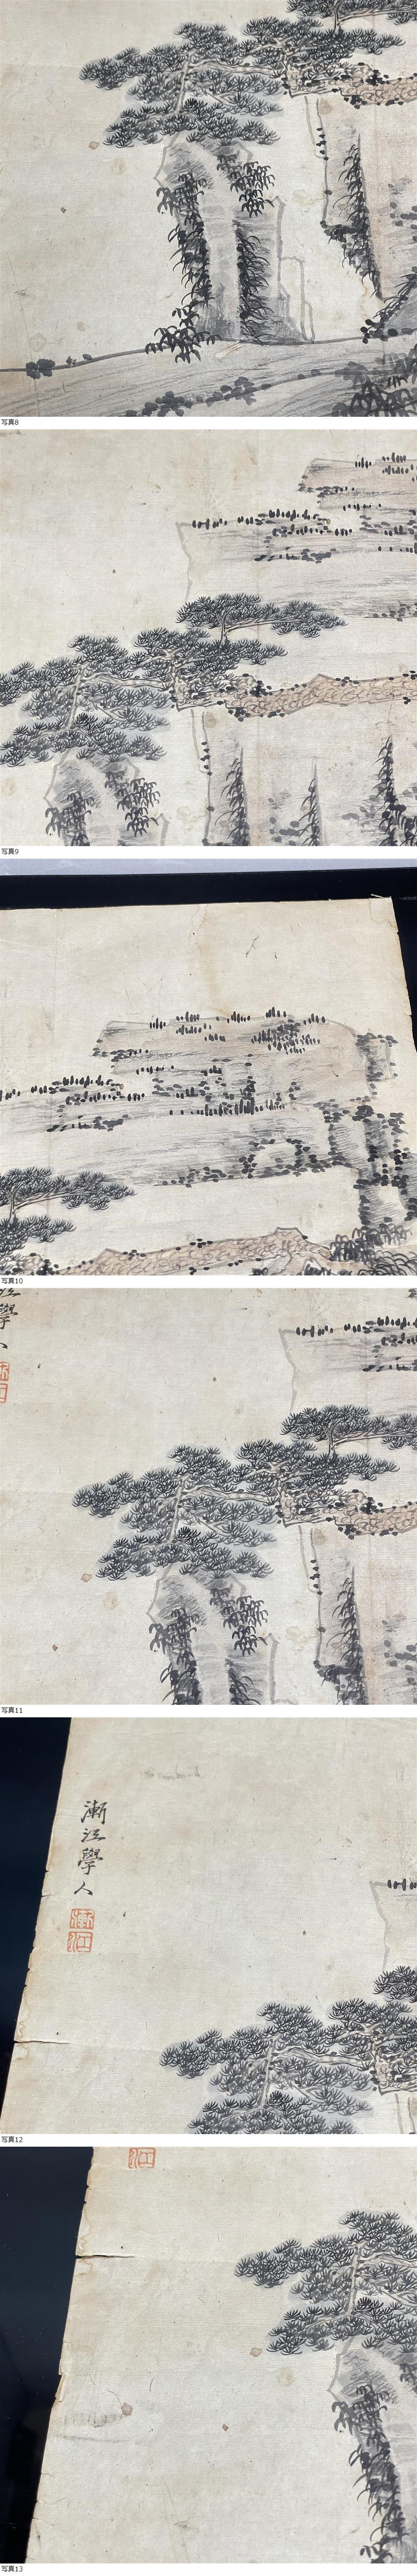 写真8
写真9
江
學
人
写真10
写真11
漸
江
學
人
漸
江
写真12
江
写真13